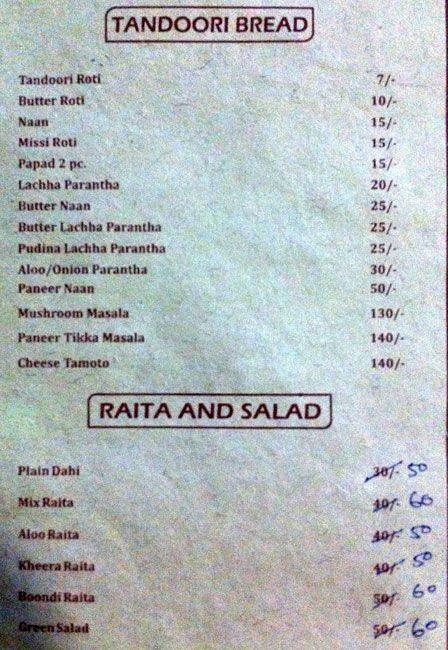 TANDOORI BREAD
Tandoori Roti 7/-
Butter Roti 10/-
Naan 15/-
Missi Roti 15/-
Papad 2 pc. 15/-
Lachha Parantha 20/-
Butter Naan 25/-
Butter Lachha Parantha 25/-
Pudina Lachha Parantha 25/-
Aloo/Onion Parantha 30/-
Paneer Naan 50/-
Mushroom Masala 130/-
Paneer Tikka Masala 140/-
Cheese Tamoto 140/-
RAITA AND SALAD
Plain Dahi 30/- 50
Mix Raita 40/- 60
Aloo Raita 40/- 50
Kheera Raita 40/- 50
Boondi Raita 50/- 60
Green Salad 50/- 60